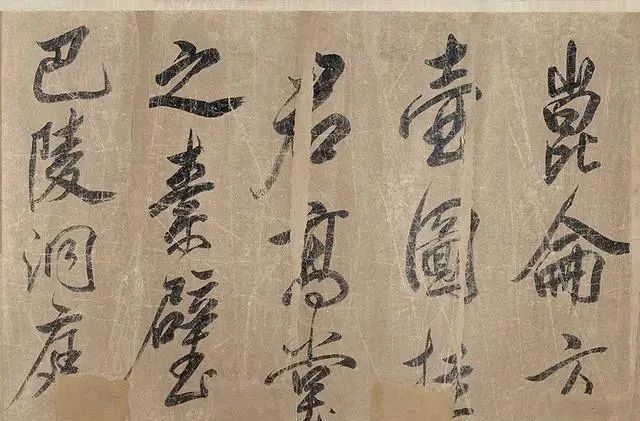 崑侖方
壺圖挂
君髙堂
之素壁
巴陵洞庭